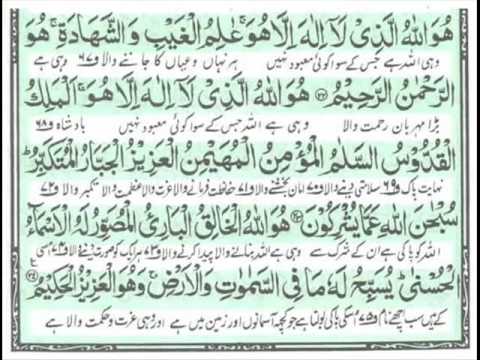 هُوَ اللهُ الَّذِىْ لَاۤ اِلٰهَ اِلَّا هُوَ ۚ عٰلِمُ الْغَيْبِ وَالشَّهَادَةِ ۚ هُوَ
وہی اللہ ہے جس کے سوا کوئی معبود نہیں ہر نہاں و عیاں کا جاننے والا ف۶۷ وہی ہے
الرَّحْمٰنُ الرَّحِيْمُ ﴿۲۲﴾ هُوَ اللهُ الَّذِىْ لَاۤ اِلٰهَ اِلَّا هُوَ ۚ اَلْمَلِكُ
بڑا مہربان رحمت والا وہی ہے اللہ جس کے سوا کوئی معبود نہیں بادشاہ ف۶۸
الْقُدُّوْسُ السَّلٰمُ الْمُؤْمِنُ الْمُهَيْمِنُ الْعَزِيْزُ الْجَبَّارُ الْمُتَكَبِّرُ ؕ
نہایت پاک ف۶۹ سلامتی دینے والا ف۷۰ امان بخشنے والا ف۷۱ حفاظت فرمانے والا عزت والا عظمت والا تکبر والا ف۷۲
سُبْحٰنَ اللهِ عَمَّا يُشْرِكُوْنَ ﴿۲۳﴾ هُوَ اللهُ الْخَالِقُ الْبَارِئُ الْمُصَوِّرُ لَهُ الْاَسْمَآءُ
اللہ کو پاکی ہے ان کے شرک سے وہی ہے اللہ بنانے والا پیدا کرنے والا ف۷۳ ہر ایک کو صورت دینے والا ف۷۴ اسی
الْحُسْنٰى ؕ يُسَبِّحُ لَهٗ مَا فِى السَّمٰوٰتِ وَالْاَرْضِ ۚ وَهُوَ الْعَزِيْزُ الْحَكِيْمُ ﴿۲۴﴾
کے ہیں سب اچھے نام ف۷۵ اسکی پاکی بولتا ہے جو کچھ آسمانوں اور زمین میں ہے اور وہی عزت و حکمت والا ہے